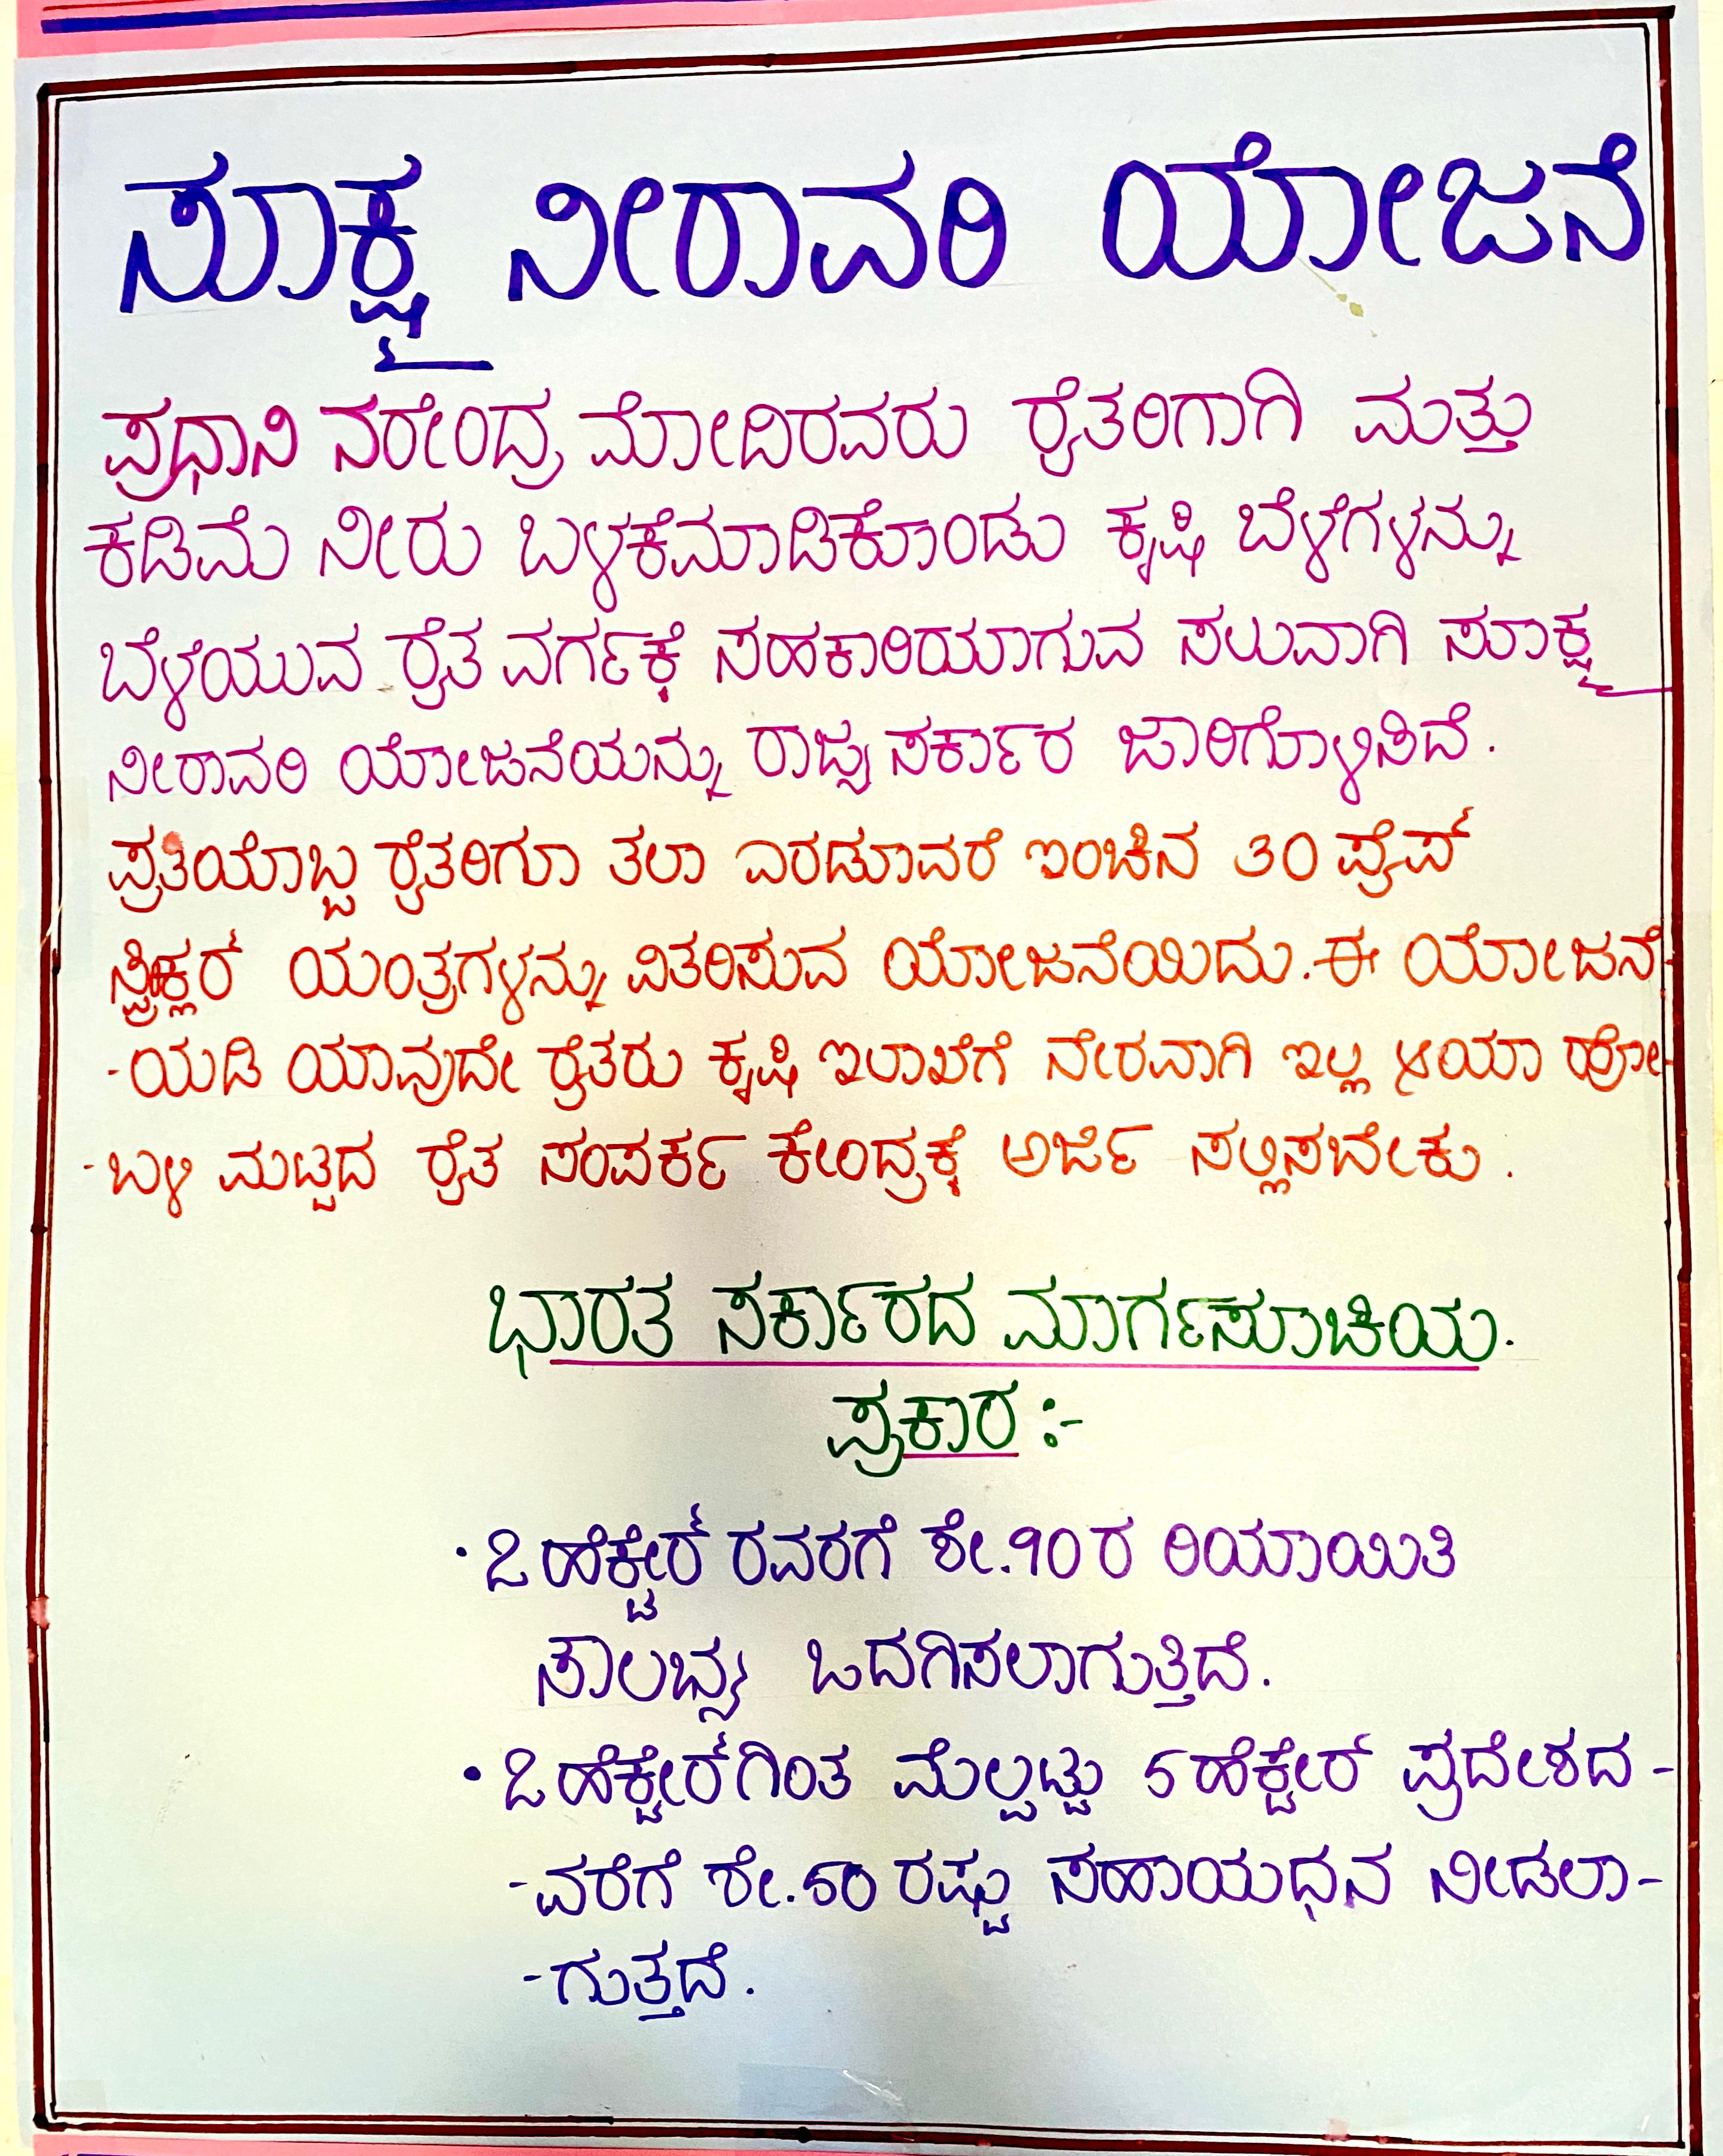 ಸೂಕ್ಷ್ಮ ನೀರಾವರಿ ಯೋಜನೆ
ಪ್ರಧಾನಿ ನರೇಂದ್ರ ಮೋದಿರವರು ರೈತರಿಗಾಗಿ ಮತ್ತು
ಕಡಿಮೆ ನೀರು ಬಳಕೆಮಾಡಿಕೊಂಡು ಕೃಷಿ ಬೆಳೆಗಳನ್ನು
ಬೆಳೆಯುವ ರೈತ ವರ್ಗಕ್ಕೆ ಸಹಕಾರಿಯಾಗುವ ಸಲುವಾಗಿ ಸೂಕ್ಷ್ಮ
ನೀರಾವರಿ ಯೋಜನೆಯನ್ನು ರಾಜ್ಯ ಸರ್ಕಾರ ಜಾರಿಗೊಳಿಸಿದೆ.
ಪ್ರತಿಯೊಬ್ಬ ರೈತರಿಗೂ ತಲಾ ಎರಡೂವರೆ ಇಂಚಿನ 30 ಪೈಪ್
ಸ್ಪ್ರಿಂಕ್ಲರ್ ಯಂತ್ರಗಳನ್ನು ವಿತರಿಸುವ ಯೋಜನೆಯಿದು. ಈ ಯೋಜನೆ-
-ಯಡಿ ಯಾವುದೇ ರೈತರು ಕೃಷಿ ಇಲಾಖೆಗೆ ನೇರವಾಗಿ ಇಲ್ಲ ಆಯಾ ಹೋ-
-ಬಳಿ ಮಟ್ಟದ ರೈತ ಸಂಪರ್ಕ ಕೇಂದ್ರಕ್ಕೆ ಅರ್ಜಿ ಸಲ್ಲಿಸಬೇಕು.
ಭಾರತ ಸರ್ಕಾರದ ಮಾರ್ಗಸೂಚಿಯ.
ಪ್ರಕಾರ :-
• 2 ಹೆಕ್ಟೇರ್ ರವರಗೆ ಶೇ.90 ರ ರಿಯಾಯಿತಿ
ಸೌಲಭ್ಯ ಒದಗಿಸಲಾಗುತ್ತಿದೆ.
• 2 ಹೆಕ್ಟೇರ್‌ಗಿಂತ ಮೆಲ್ಪಟ್ಟು 5 ಹೆಕ್ಟೇರ್ ಪ್ರದೇಶದ -
-ವರೆಗೆ ಶೇ.50 ರಷ್ಟು ಸಹಾಯಧನ ನೀಡಲಾ-
-ಗುತ್ತದೆ.